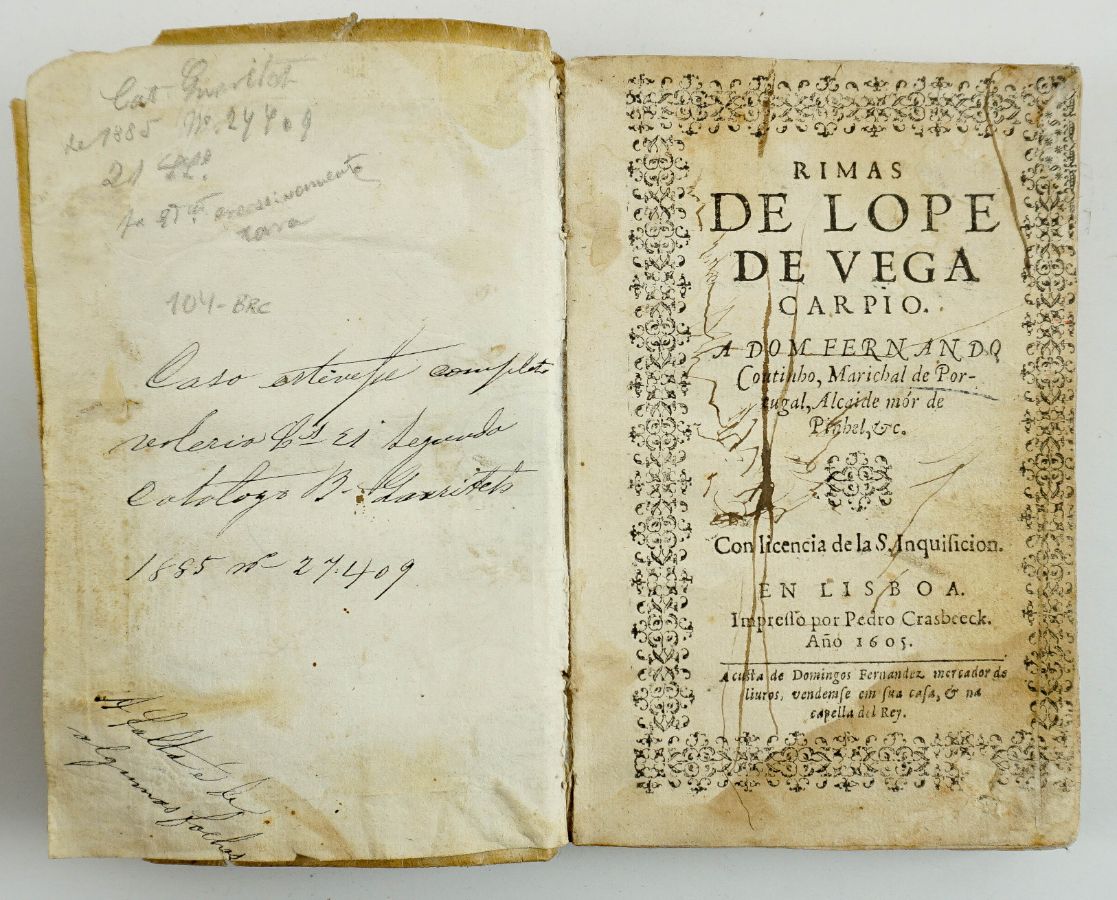 Cat
de 1885 Nº 27409
21
excessivamente
rara
104-BRC
Caso estivesse completo
valeria 21 segundo
catalogo B.
1885 nº 27.409
A falta é de
algumas folhas
RIMAS
DE LOPE
DE VEGA
CARPIO.
A DOM FERNANDO
Coutinho, Marichal de Por-
tugal, Alcaide mór de
Pinhel, &c.
Con licencia de la S. Inquisicion.
EN LISBOA.
Impresso por Pedro Crasbeeck.
Año 1605.
A custa de Domingos Fernandez mercador de
liuros, vendemse em sua casa, & na
capella del Rey.